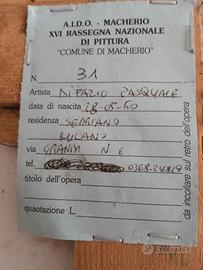 A.I.D.O. - MACHERIO
XVI RASSEGNA NAZIONALE
DI PITTURA
"COMUNE DI MACHERIO"
N 31
Artista DIFAZIO PASQUALE
data di nascita 18-05-60
residenza SEDRIANO
MILANO
via GRAMSCI N 6
tel. 0368-
titolo dell'opera
quotazione L.
da incollare sul retro dell'opera
Subito